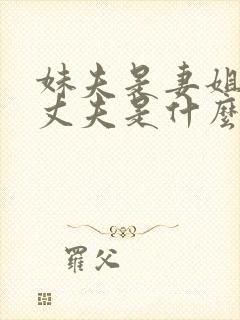 妹夫是妻姐
丈夫是什麼
羅父